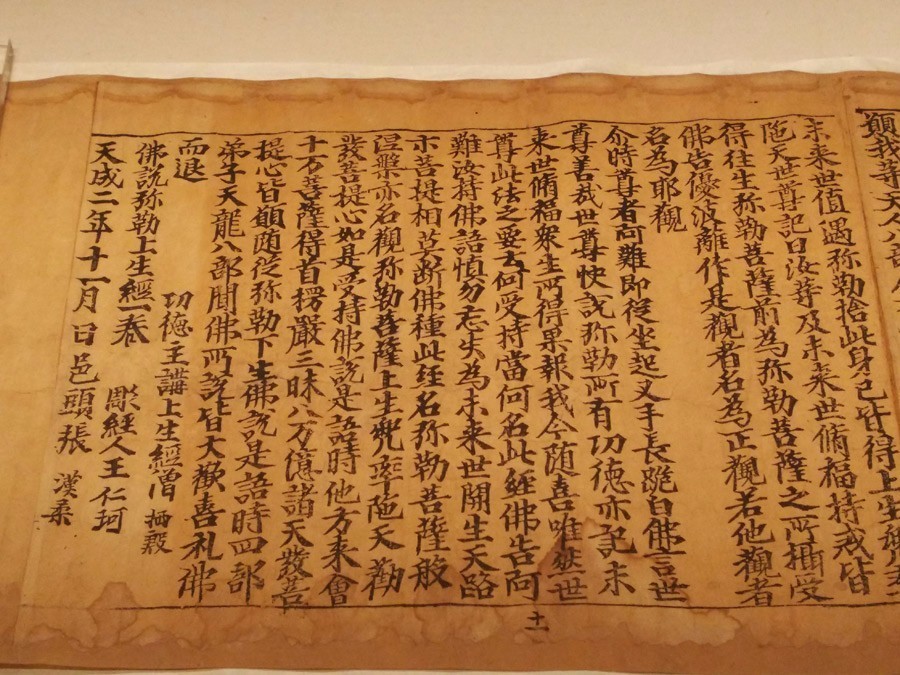 願我等天人八部
未来世值遇弥勒捨此身已皆得上生
陁天世尊記曰汝等及未来世俻福持戒皆
得往生弥勒菩薩前為弥勒菩薩之所攝受
佛告優波離作是觀者名為正觀若他觀者
名為耶觀
尒時尊者阿難即從坐起叉手長跪白佛言世
尊善哉世尊快說弥勒所有功德亦記未
来世俻福衆生所得果報我今随喜唯然世
尊此法之要云何受持當何名此經佛告阿
十一
難汝持佛語慎勿忘失為未来世開生天路
示菩提相莫斷佛種此經名弥勒菩薩般
涅槃亦名觀弥勒菩薩上生兜率陁天勸
發菩提心如是受持佛說是語時他方来會
十万菩薩得首楞嚴三昧八万億諸天發菩
提心皆願随從弥勒下生佛說是語時四部
弟子天龍八部聞佛所說皆大歡喜礼佛
而退
功德主講上生經僧 栖殷
佛說弥勒上生經一卷
彫經人王仁珂
天成二年十一月日邑頭張漢柔